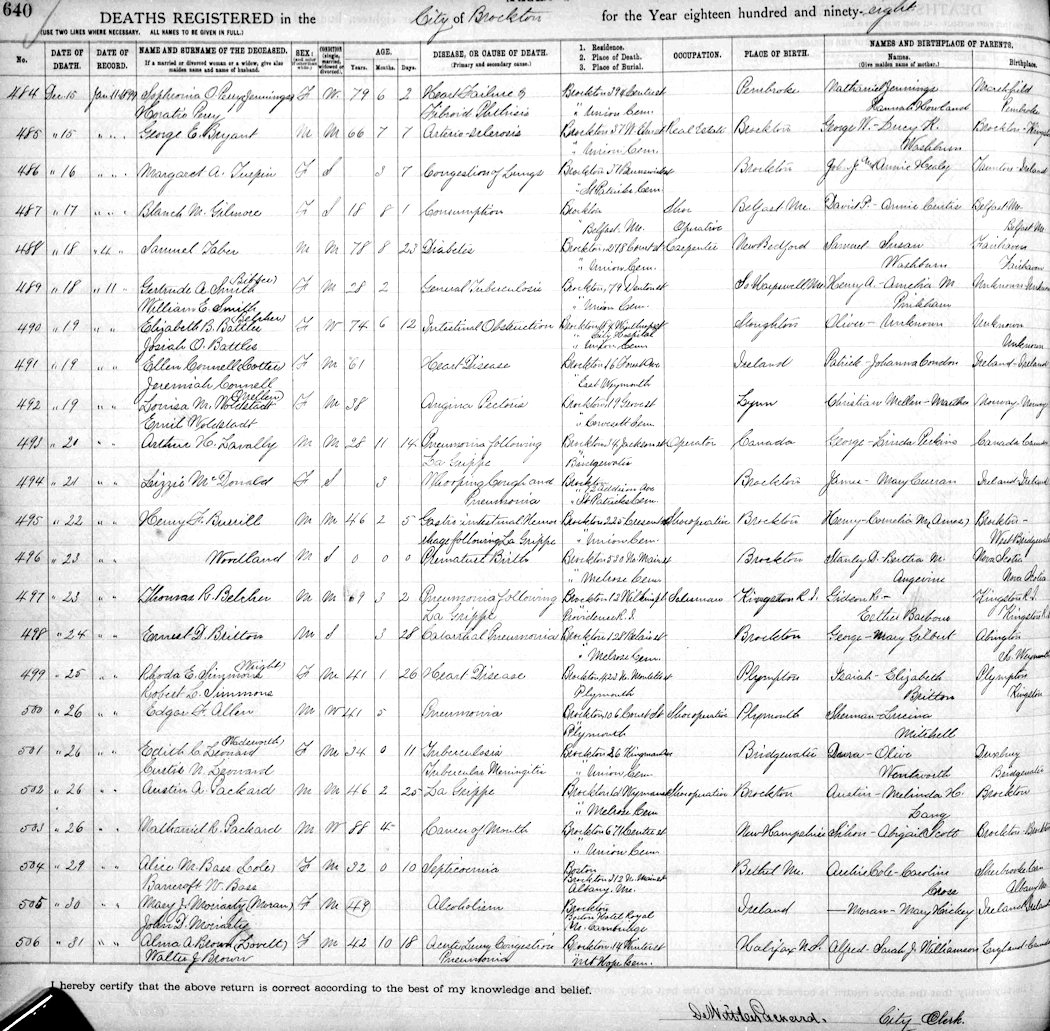 640
DEATHS REGISTERED in the City of Brockton for the Year eighteen hundred and ninety-eight
(USE TWO LINES WHERE NECESSARY. ALL NAMES TO BE GIVEN IN FULL.)
No. DATE OF DEATH. DATE OF RECORD. NAME AND SURNAME OF THE DECEASED. SEX; CONDITION AGE. DISEASE, OR CAUSE OF DEATH. 1. Residence. OCCUPATION. PLACE OF BIRTH. NAMES AND BIRTHPLACE OF PARENTS,
If a married or divorced woman or a widow, give also maiden name and name of husband. (single, married, widowed or divorced). Years. Months. Days. (Primary and secondary cause.) 2. Place of Death. Names. Birthplace.
3. Place of Burial. (Give maiden name of mother.)
484 Dec 15 Jan 11 1899 Sephronia O Perry Jennings F W. 79 6 2 Heart Failure & Brockton 394 Centre st Pembroke Nathaniel Jennings Marshfield
Horatio Perry Fibroid Phthisis " Union Cem. Hannah Howland Pembroke
485 " 15 " " George E. Bryant M M 66 7 7 Arterio-sclerosis Brockton Real Estate Brockton George W.- Lucy K. Brockton-
" Union Cem. Washburn
486 " 16 " " Margaret A. F S 3 7 Congestion of Lungs Brockton 37 Brockton Annie Healey Taunton Ireland
" St Patricks Cem.
487 " 17 " " Blanch M. Gilmore F S 18 8 1 Consumption Brockton Shoe Belfast Me. David P.- Annie Curtis Belfast Me.
Belfast Me. Operative Belfast Me
488 " 18 Samuel Taber M M 78 8 23 Diabetes Brockton 278 Court st Carpenter New Bedford Samuel Susan Fairhaven
" Union Cem. Washburn Fairhaven
489 " 18 " 11 " Gertrude A. Smith F M 28 2 General Tuberculosis Brockton, 79 So Harpswell Me Henry A- Amelia M Unknown Unknown
William E. Smith " Union Cem. Pinkham
490 " 19 " " Elizabeth B. Battles (Belcher) F W 74 6 12 Intestinal Obstruction Brockton Stoughton Oliver- Unknown Unknown
Josiah O. Battles City Hospital
" Union Cem. Unknown
491 " 19 " " Ellen Connell (Cotter) F M 61 Heart Disease Brockton 16 Ireland Patrick-Johanna Condon Ireland-Ireland
Jeremiah Connell " East Weymouth
492 " 19 " " Louisa M. Woldstadt (Mellen) F M 38 Angina Pectoris Brockton 19 Grove st Lynn Christian Mellen- Norway-Norway
Emil Woldstadt " Cem
493 " 20 " " Arthur H. Lavally M M 28 11 14 Pneumonia following Brockton Jackson st Operator Canada George-Linda Perkins Canada Canada
La Grippe Bridgewater
494 " 21 " " Lizzie McDonald F S 3 Whooping Cough and Brockton Brockton James- Mary Curran Ireland Ireland
Pneumonia " St Patricks Cem.
495 " 22 " " Henry F. Burrill M M 46 2 5 Gastro-intestinal Hemor Brockton 225 Crescent Shoe operative Brockton Henry-Cornelia M. Brockton-
rhage following La Grippe " Union Cem. West Bridgewater
496 " 23 " " Woodland M S 0 0 0 Premature Birth Brockton 530 No Main st Brockton Stanley D. Bertha M. Nova Scotia
" Melrose Cem. Angevine Nova Scotia
497 " 23 " " Thomas R. Belcher M M 69 3 2 Pneumonia following Brockton 12 Salesman Kingston R.I. Gideon R- Kingston R.I
La Grippe Providence R.I. Barbour Kingston R.I.
498 " 24 " " Ernest D. Britton M S 3 28 Catarrhal Pneumonia Brockton 128 Brockton George-Mary Gilbert Abington
" Melrose Cem. So. Weymouth
499 " 25 " " Rhoda E. Simmons (Wright) F M 41 1 26 Heart Disease Brockton, 423 No Montello st Plympton Isaiah- Elizabeth Plympton
Robert L. Simmons Plymouth Britton Kingston
500 " 26 " " Edgar F. Allen M W 41 5 Pneumonia Brockton 106 Court St Shoe operative Plymouth Sherman-Lucina
Plymouth Mitchell
501 " 26 " " Edith C. Leonard (Wadsworth) F M 34 0 11 Tuberculosis Brockton 26 Bridgewater Dura- Olive Duxbury
Curtis N. Leonard Tubercular Meningitis " Union Cem. Wentworth Bridgewater
502 " 26 " " Austin A. Packard M M 46 2 25 La Grippe Brockton Wyman st Shoe operative Brockton Austin- Melinda H. Brockton
" Melrose Cem Lang
503 " 26 " " Nathaniel R. Packard M W 88 4 Cancer of Mouth Brockton 671 Centre st New Hampshire Abigail Scott Brockton-Brockton
" Union Cem.
504 " 29 " " Alice M. Bass (Cole) F M 32 0 10 Septicaemia Boston Bethel Me. Austin Cole-Caroline Sherbrooke Can
Bancroft W. Bass Brockton 312 N. Main st
Albany, Me. Cross Albany Me
505 " 30 " " Mary J. Moriarty (Moran) F M 49 Alcoholism Brockton Ireland — Moran-Mary Hickey Ireland Ireland
John D. Moriarty Boston Hotel Royal
No. Cambridge
506 " 31 " " Alma A Brown (Lovett) F M 42 10 18 Acute Lung Congestion Brockton 14 Winter st Halifax N.S. Alfred- Sarah J Williamson England-Canada
Walter J Brown Pneumonia " Mt Hope Cem.
I hereby certify that the above return is correct according to the best of my knowledge and belief.
DeWitt C. Packard. City Clerk.